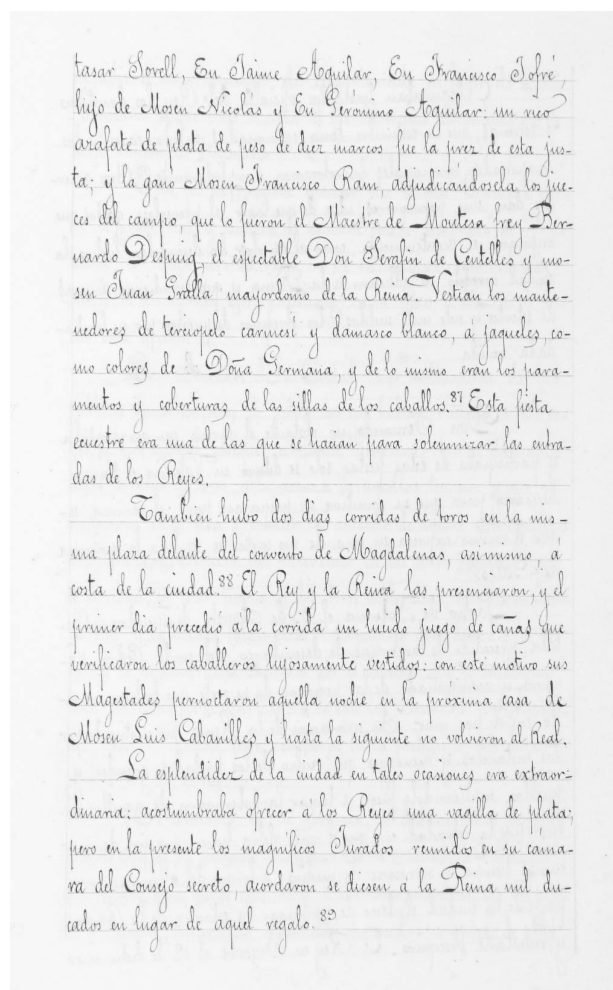 tasar Sorell, En Jaime Aguilar, En Francisco Jofré,
hijo de Mosen Nicolás y En Gerónimo Aguilar: un rico
azafate de plata de peso de diez marcos fue la prez de esta jus-
ta; y la ganó Mosen Francisco Ram, adjudicándosela los jue-
ces del campo, que lo fueron el Maestre de Montesa frey Ber-
nardo Despuig, el espectable Don Serafin de Centelles y mo-
sen Juan Gralla mayordomo de la Reina. Vestian los mante-
nedores de terciopelo carmesí y damasco blanco, á jaqueles, co-
mo colores de Doña Germana, y de lo mismo eran los para-
mentos y coberturas de las sillas de los caballos.87 Esta fiesta
ecuestre era una de las que se hacian para solemnizar las entra-
das de los Reyes.
Tambien hubo dos dias corridas de toros en la mis-
ma plaza delante del convento de Magdalenas, asimismo, á
costa de la ciudad.88 El Rey y la Reina las presenciaron, y el
primer dia precedió á la corrida un lucido juego de cañas que
verificaron los caballeros lujosamente vestidos: con este motivo sus
Magestades pernoctaron aquella noche en la próxima casa de
Mosen Luis Cabanilles y hasta la siguiente no volvieron al Real.
La esplendidez de la ciudad en tales ocasiones era extraor-
dinaria: acostumbraba ofrecer á los Reyes una vagilla de plata;
pero en la presente los magníficos Jurados reunidos en su cáma-
ra del Consejo secreto, acordaron se diesen á la Reina mil du-
cados en lugar de aquel regalo.89